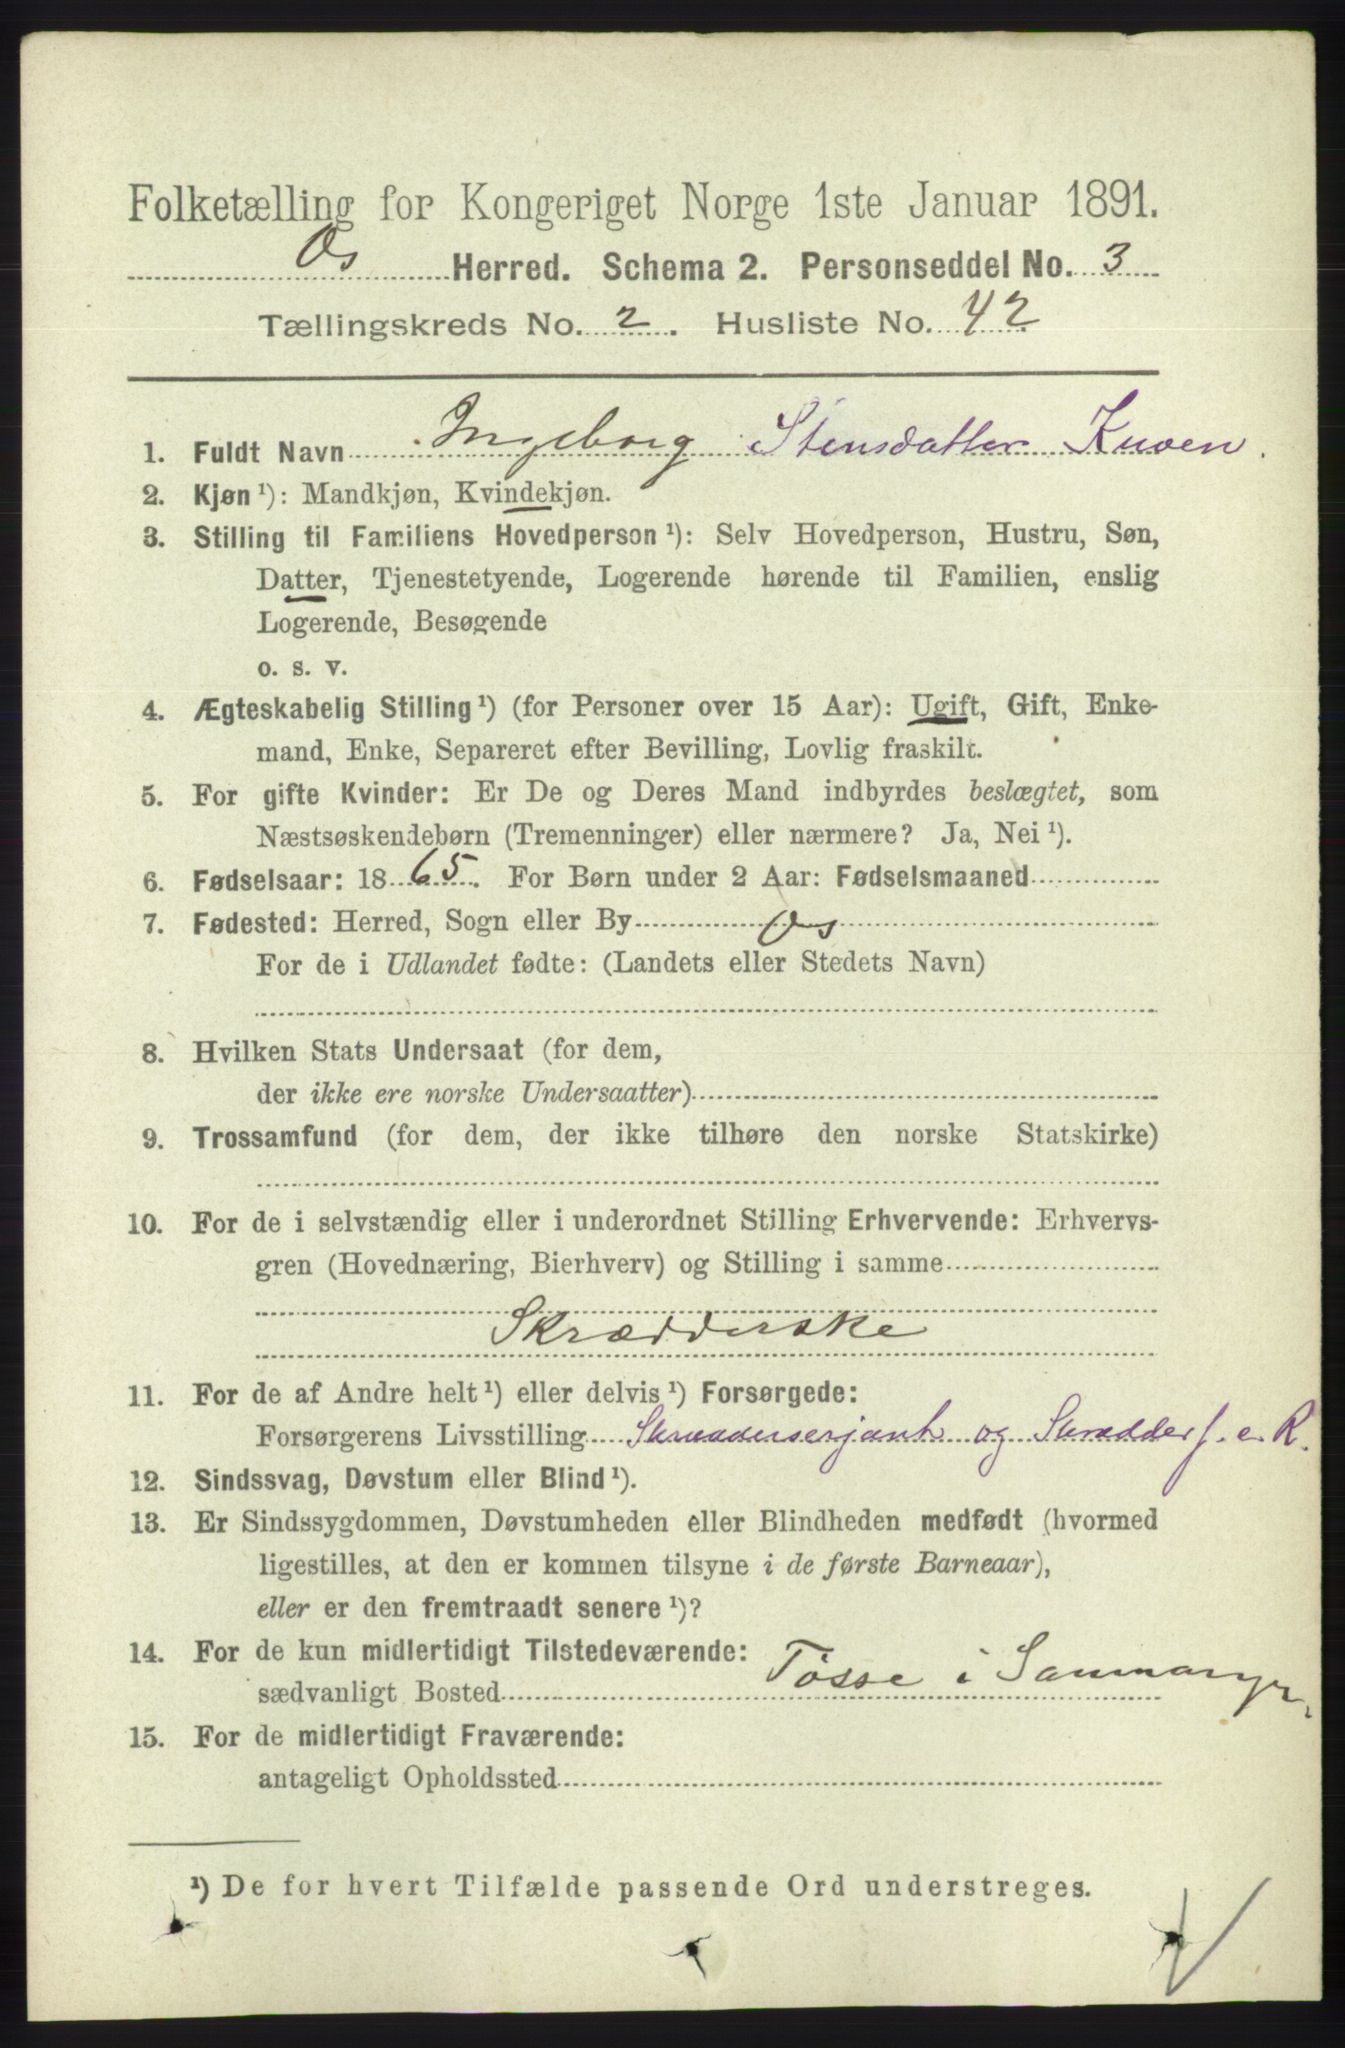 Folketælling for Kongeriget Norge 1ste Januar 1891.
Os Herred. Schema 2. Personseddel No. 3
Tællingskreds No. 2. Husliste No. 42
1. Fuldt Navn Ingeborg Stensdatter Kuven.
2. Kjøn ¹): Mandkjøn, Kvindekjøn.
3. Stilling til Familiens Hovedperson ¹): Selv Hovedperson, Hustru, Søn,
Datter, Tjenestetyende, Logerende hørende til Familien, enslig
Logerende, Besøgende
o. s. v.
4. Ægteskabelig Stilling ¹) (for Personer over 15 Aar): Ugift, Gift, Enke-
mand, Enke, Separeret efter Bevilling, Lovlig fraskilt.
5. For gifte Kvinder: Er De og Deres Mand indbyrdes beslægtet, som
Næstsøskendebørn (Tremenninger) eller nærmere? Ja, Nei ¹).
6. Fødselsaar: 1865. For Børn under 2 Aar: Fødselsmaaned
7. Fødested: Herred, Sogn eller By Os
For de i Udlandet fødte: (Landets eller Stedets Navn)
8. Hvilken Stats Undersaat (for dem,
der ikke ere norske Undersaatter)
9. Trossamfund (for dem, der ikke tilhøre den norske Statskirke)
10. For de i selvstændig eller i underordnet Stilling Erhvervende: Erhvervs-
gren (Hovednæring, Bierhverv) og Stilling i samme
Skrædderske
11. For de af Andre helt ¹) eller delvis ¹) Forsørgede:
Forsørgerens Livsstilling og Skrædder f. e. R.
12. Sindssvag, Døvstum eller Blind ¹).
13. Er Sindssygdommen, Døvstumheden eller Blindheden medfødt (hvormed
ligestilles, at den er kommen tilsyne i de første Barneaar),
eller er den fremtraadt senere ¹)?
14. For de kun midlertidigt Tilstedeværende:
sædvanligt Bosted Tøsse i
15. For de midlertidigt Fraværende:
antageligt Opholdssted
¹) De for hvert Tilfælde passende Ord understreges.